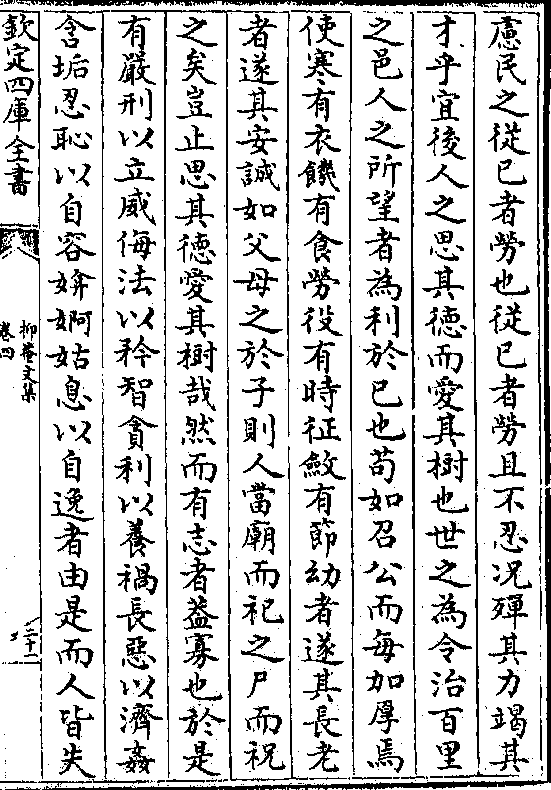 慮民之從已者勞也從已者勞且不忍況殫其力竭其
才乎宜後人之思其徳而愛其樹也世之為令治百里
之邑人之所望者為利於已也苟如召公而每加厚焉
使寒有衣饑有食勞役有時征斂有節幼者遂其長老
者遂其安誠如父母之於子則人當廟而祀之尸而祝
之矣豈止思其徳愛其樹哉然而有志者葢寡也於是
有嚴刑以立威侮法以矜智貪利以養禍長惡以濟姦
含垢忍恥以自容媕婀姑息以自逸者由是而人皆失
欽定四庫全書
柳菴文集
卷四
二十一